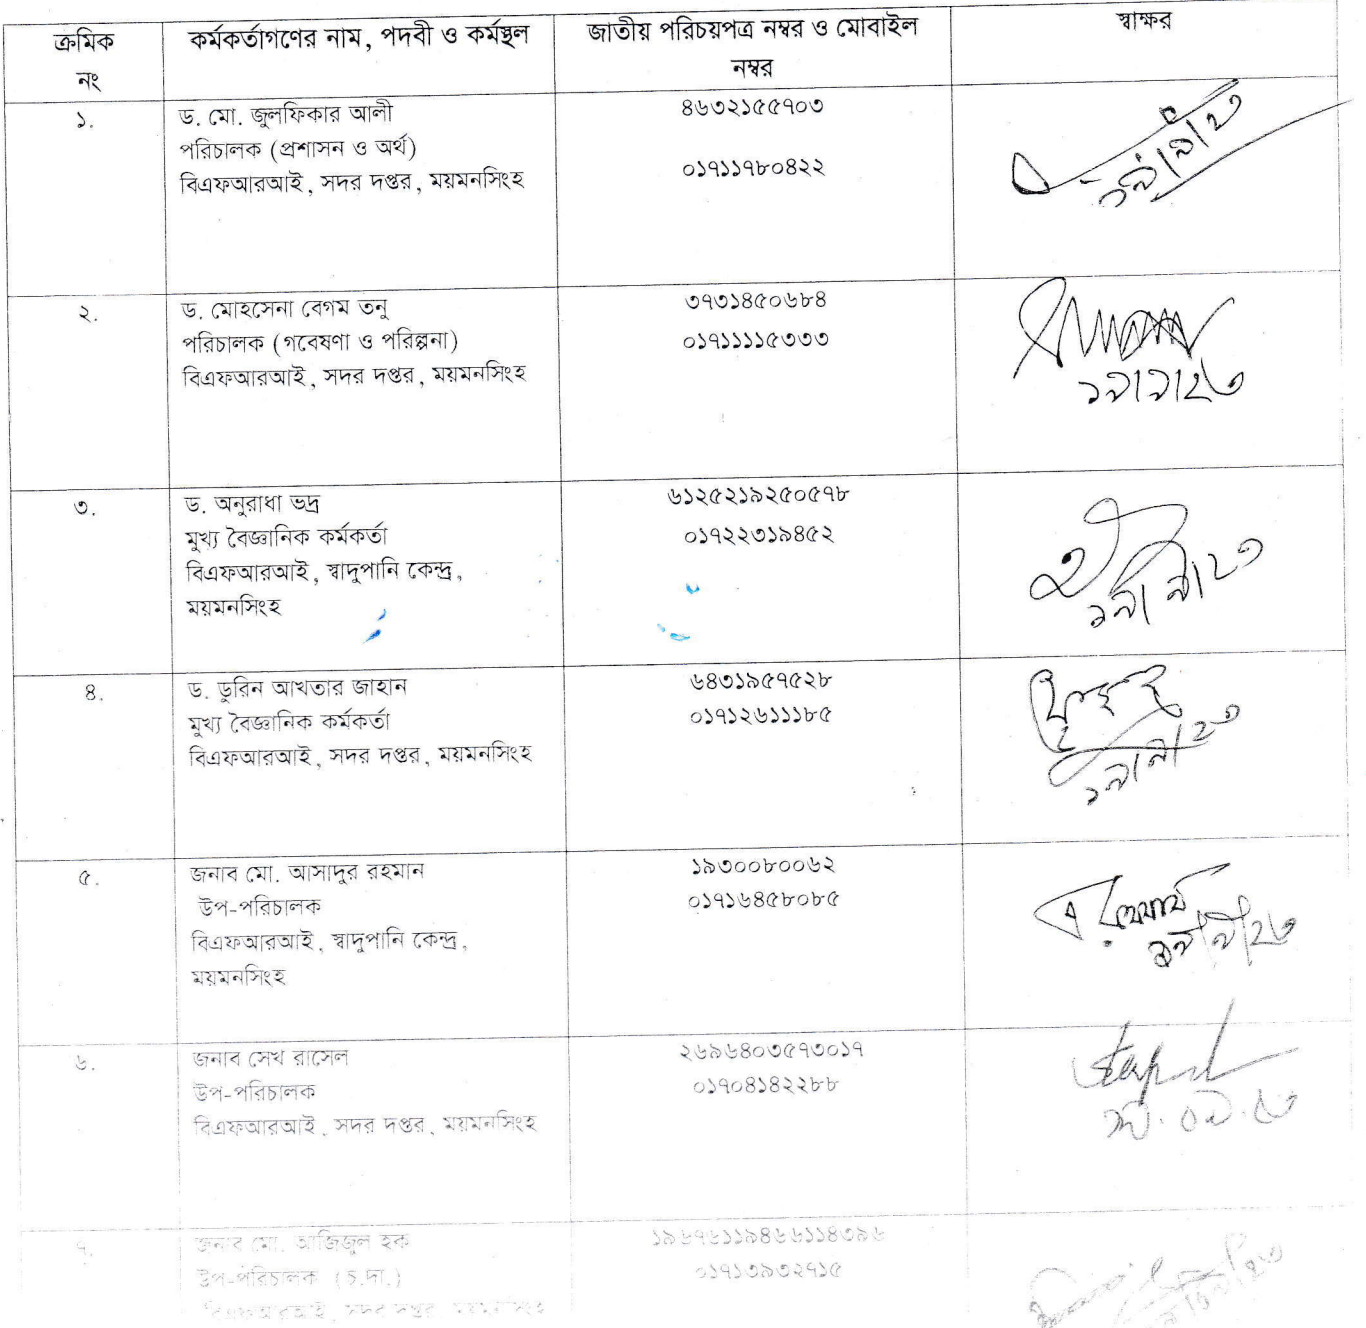 ক্রমিক নং
কর্মকর্তাগণের নাম, পদবী ও কর্মস্থল
জাতীয় পরিচয়পত্র নম্বর ও মোবাইল নম্বর
স্বাক্ষর
১.
ড. মো. জুলফিকার আলী
পরিচালক (প্রশাসন ও অর্থ)
বিএফআরআই, সদর দপ্তর, ময়মনসিংহ
৪৬৩২১৫৫৭০৩
০১৭১১৭৮০৪২২
২.
ড. মোহসেনা বেগম তনু
পরিচালক (গবেষণা ও পরিল্পনা)
বিএফআরআই, সদর দপ্তর, ময়মনসিংহ
৩৭৩১৪৫০৬৮৪
০১৭১১১১৫৩৩৩
১৯।৯।২৩
৩.
ড. অনুরাধা ভদ্র
মুখ্য বৈজ্ঞানিক কর্মকর্তা
বিএফআরআই, স্বাদুপানি কেন্দ্র,
ময়মনসিংহ
৬১২৫২১৯২৫০৫৭৮
০১৭২২৩১৯৪৫২
১৯।৯।২৩
৪.
ড. ডুরিন আখতার জাহান
মুখ্য বৈজ্ঞানিক কর্মকর্তা
বিএফআরআই, সদর দপ্তর, ময়মনসিংহ
৬৪৩১৯৫৭৫২৮
০১৭১২৬১১১৮৫
১৯।৯।২৩
৫.
জনাব মো. আসাদুর রহমান
উপ-পরিচালক
বিএফআরআই, স্বাদুপানি কেন্দ্র,
ময়মনসিংহ
১৯৩০০৮০০৬২
০১৭১৬৪৫৮০৮৫
৬.
জনাব সেখ রাসেল
উপ-পরিচালক
বিএফআরআই, সদর দপ্তর, ময়মনসিংহ
২৬৯৬৪০৩৫৭৩০১৭
০১৭০৪১৪২২৮৮
৭.
জনাব মো. আজিজুল হক
উপ-পরিচালক (চ.দা.)
বিএফআরআই, সদর দপ্তর, ময়মনসিংহ
১৯৬৭৬১১৯৪৬৬১১৪৩৯৬
০১৭১৩৯৩২৭১৫